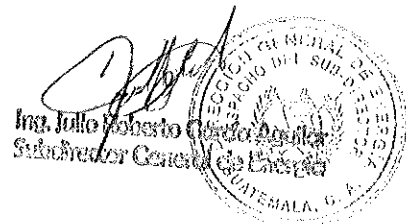 Ing. Julio Roberto García Aguilar
Subdirector General de Energía
DIRECCION GENERAL DE ENERGIA
DESPACHO DEL SUB-DIRECTOR
GUATEMALA, C. A.